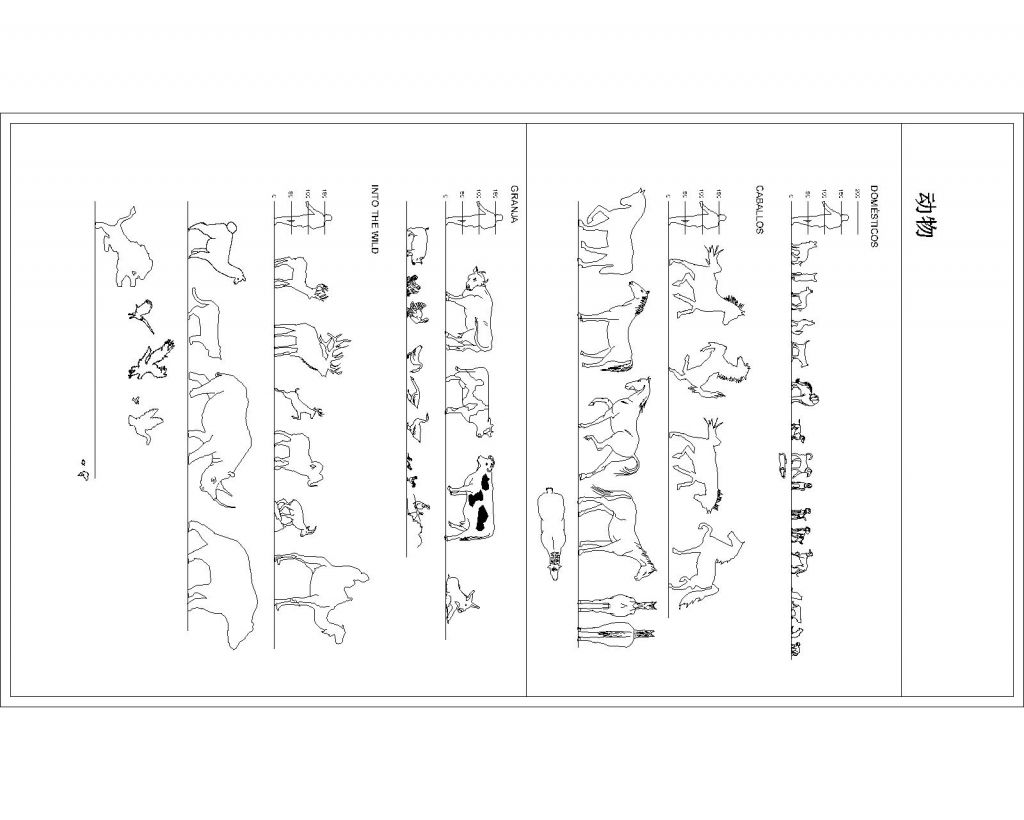 动物
DOMÉSTICOS
200
150
100
50
0
CABALLOS
150
100
50
0
GRANJA
150
100
50
0
INTO THE WILD
150
100
50
0